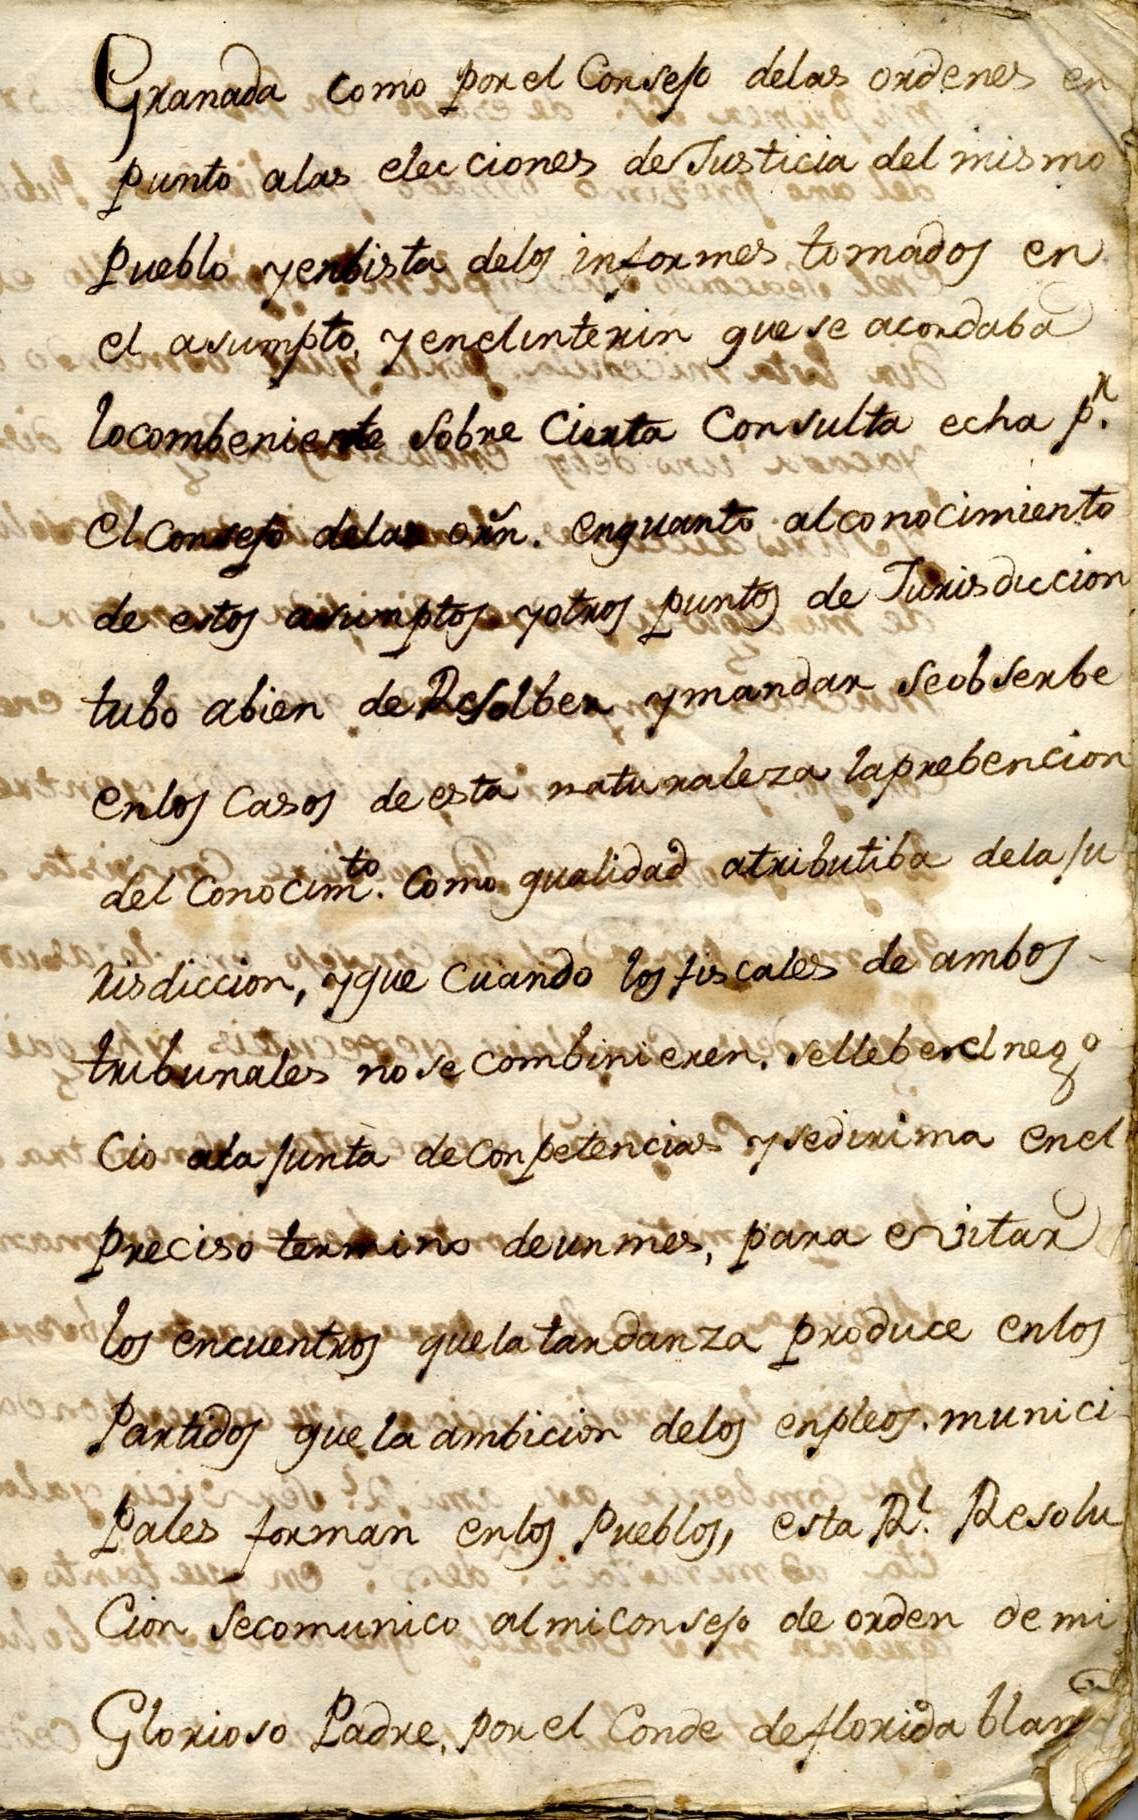 Granada como por el Consejo delas ordenes en
punto alas elecciones de Justicia del mismo
Pueblo yenbista delos informes tomados en
el asumpto, yenelinterin que se acordaba
locombeniente sobre Cierta Consulta echa p.r
el Consejo delas orn. enquanto alconocimiento
de estos asumptos yotros puntos de Jurisdiccion
tubo abien de Resolber ymandar seobserbe
enlos Casos de esta naturaleza laprebencion
del Conocim.to Como qualidad atributiba dela Ju
risdiccion, yque Cuando los fiscales de ambos
tribunales no se combinieren. selleberel nego
cio ala Junta deConpetencias ysedirima enel
preciso termino deunmes, para evitar
los encuentros quela tardanza produce enlos
Partidos que la ambicion delos enpleos. munici
Pales forman enlos Pueblos, esta R.l Resolu
Cion secomunico almiConsejo de orden de mi
Glorioso Padre, por el Conde deflorida blan